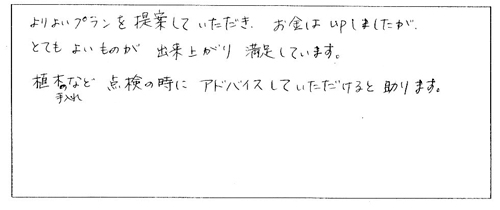 よりよいプランを提案していただき、お金はupしましたが、
とてもよいものが出来上がり満足しています。
植木の手入れなど点検の時にアドバイスしていただけると助ります。